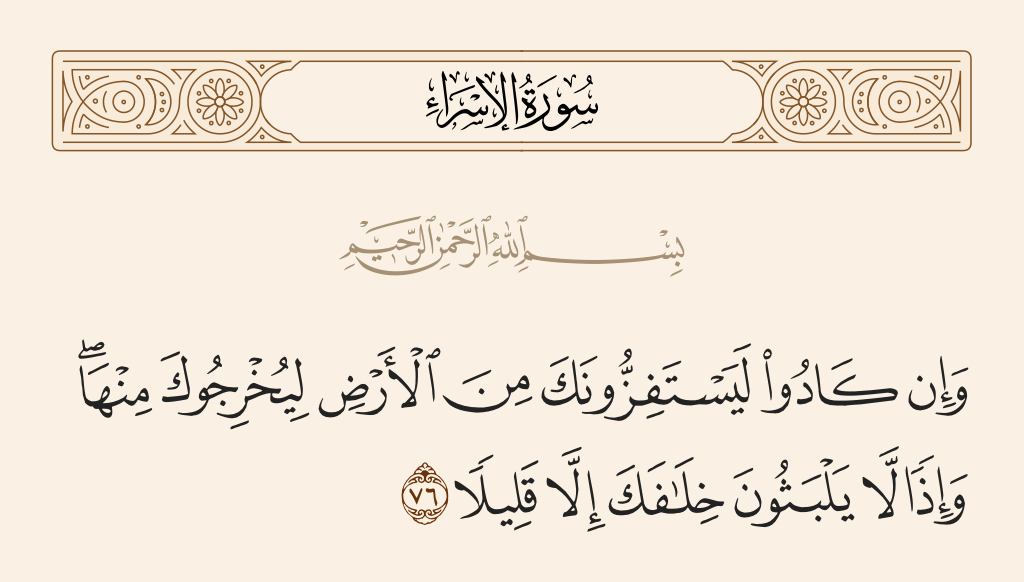 سُورَةُ الإِسْرَاءِ
بِسْمِ ٱللَّهِ ٱلرَّحْمَٰنِ ٱلرَّحِيمِ
وَإِن كَادُوا۟ لَيَسْتَفِزُّونَكَ مِنَ ٱلْأَرْضِ لِيُخْرِجُوكَ مِنْهَا ۖ
وَإِذًا لَّا يَلْبَثُونَ خِلَـٰفَكَ إِلَّا قَلِيلًا ٧٦